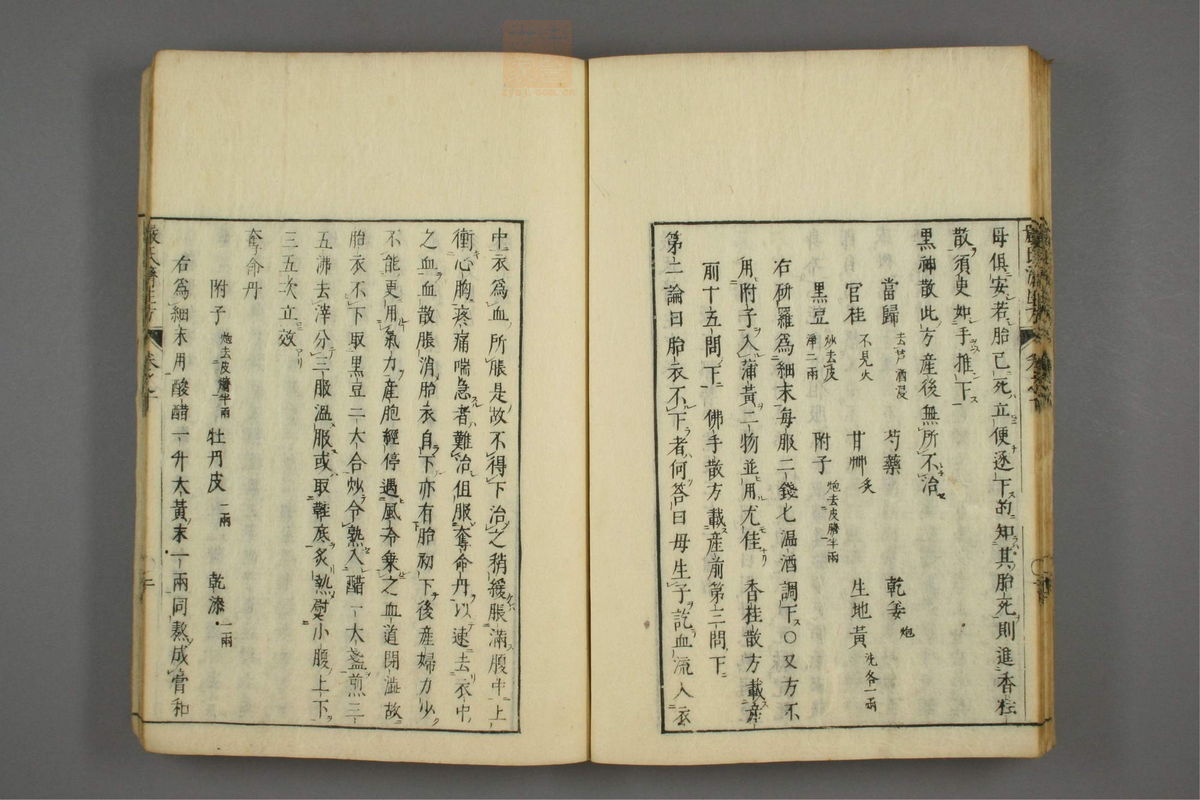 母俱安若胎已死立便逐下的知其胎死則進香桂
散須臾如手推下
黑神散此方産後無所不治
當歸 去芦酒浸 芍藥 乾姜 炮
官桂 不見火 甘艸 炙 生地黃 洗各一兩
黑豆 炒去皮淨二兩 附子 炮去皮臍半兩
右研羅爲細末每服二錢七温酒調下○又方不
用附子入蒲黃二物並用尤佳 香桂散方載産
前十五問下 佛手散方載産前第三問下
第二論曰胎衣不下者何答曰母生子訖血流入衣
中衣爲血所脹是故不得下治之稍緩脹滿腹中上
衝心胸疼痛喘急者難治但服奪命丹以速去衣中
之血血散脹消胎衣自下亦有胎初下後産婦力少
不能更用氣力産胞經停遇風冷乗之血道閉澁故
胎衣不下取黑豆二大合炒令熟入醋一大盞煎三
五沸去滓分三服温服或取鞋底炙熱熨小腹上下
三五次立效
奪命丹
附子 炮去皮臍半兩 牡丹皮 一兩 乾漆 一兩
右爲細末用酸醋一升大黃末一兩同熬成膏和